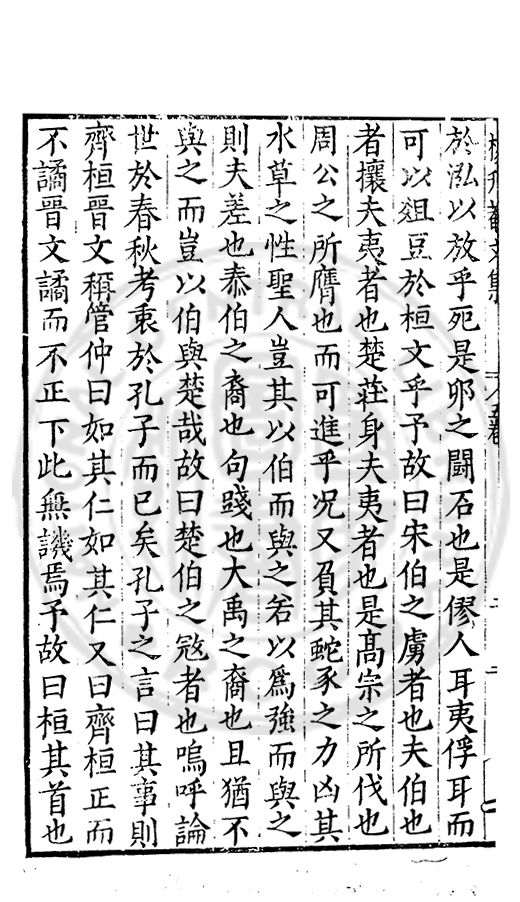 楊升菴文集 卷五
於泓以放乎死是卵之鬭石也是僇人耳夷俘耳而
可以俎豆於桓文乎予故曰宋伯之虜者也夫伯也
者攘夫夷者也楚莊身夫夷者也是髙宗之所伐也
周公之所膺也而可進乎况又負其蛇豕之力凶其
水草之性聖人豈其以伯而與之若以爲強而與之
則夫差也泰伯之裔也句踐也大禹之裔也且猶不
與之而豈以伯與楚哉故曰楚伯之宼者也嗚呼論
世於春秋考衷於孔子而已矣孔子之言曰其事則
齊桓晉文稱管仲曰如其仁如其仁又曰齊桓正而
不譎晉文譎而不正下此無譏焉予故曰桓其首也